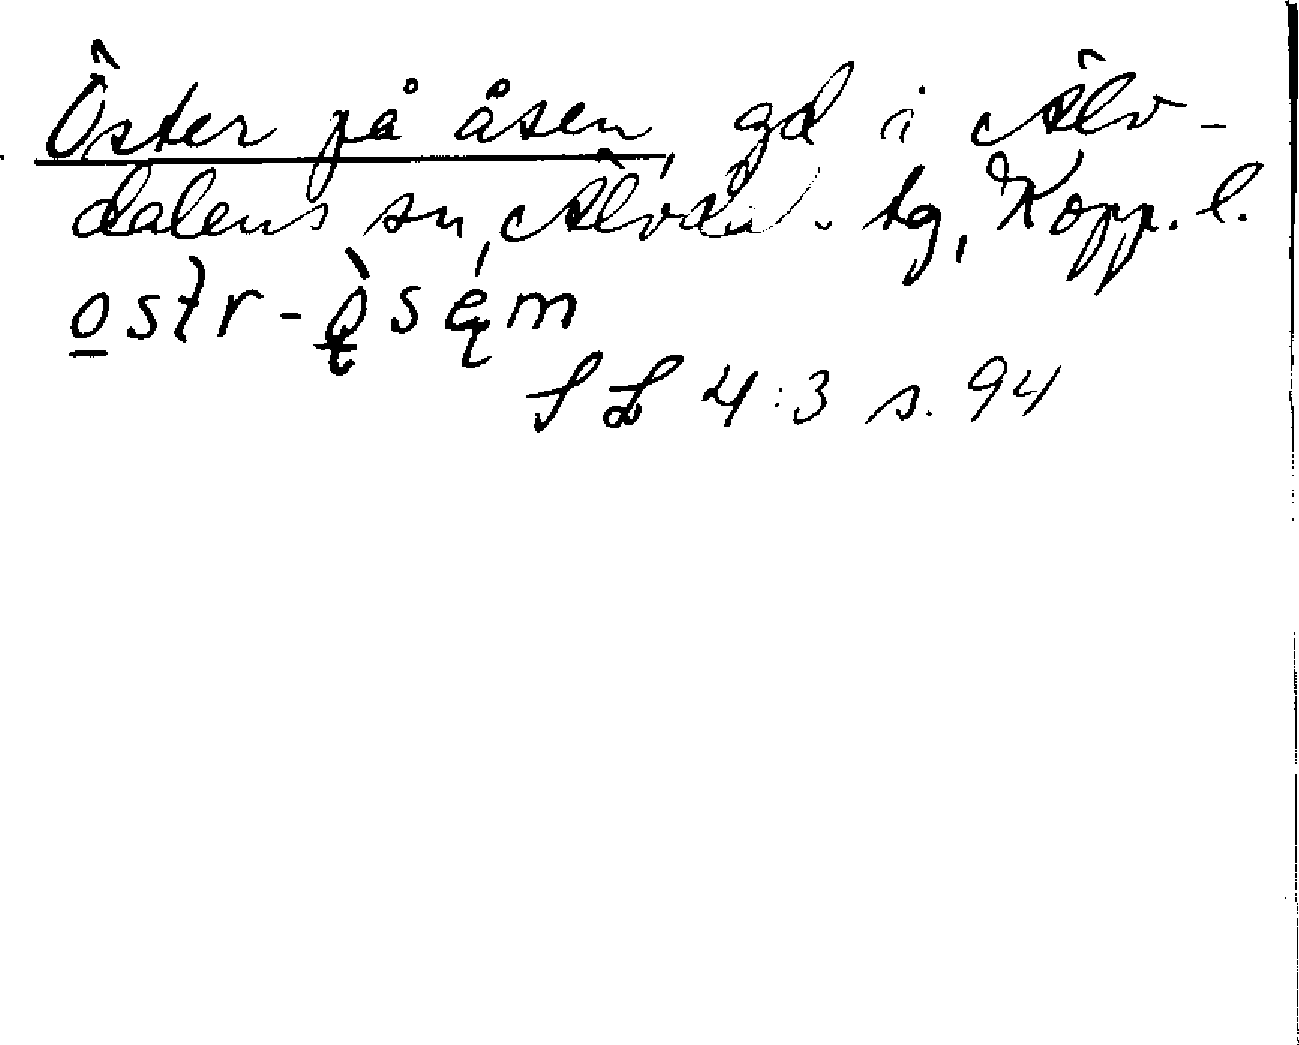 Öster på åsen, gd i Älv-
dalens sn, Älvdal. tg, Kopp. l.
ostr-ǫ̀sę́m
SL 4:3 s. 94